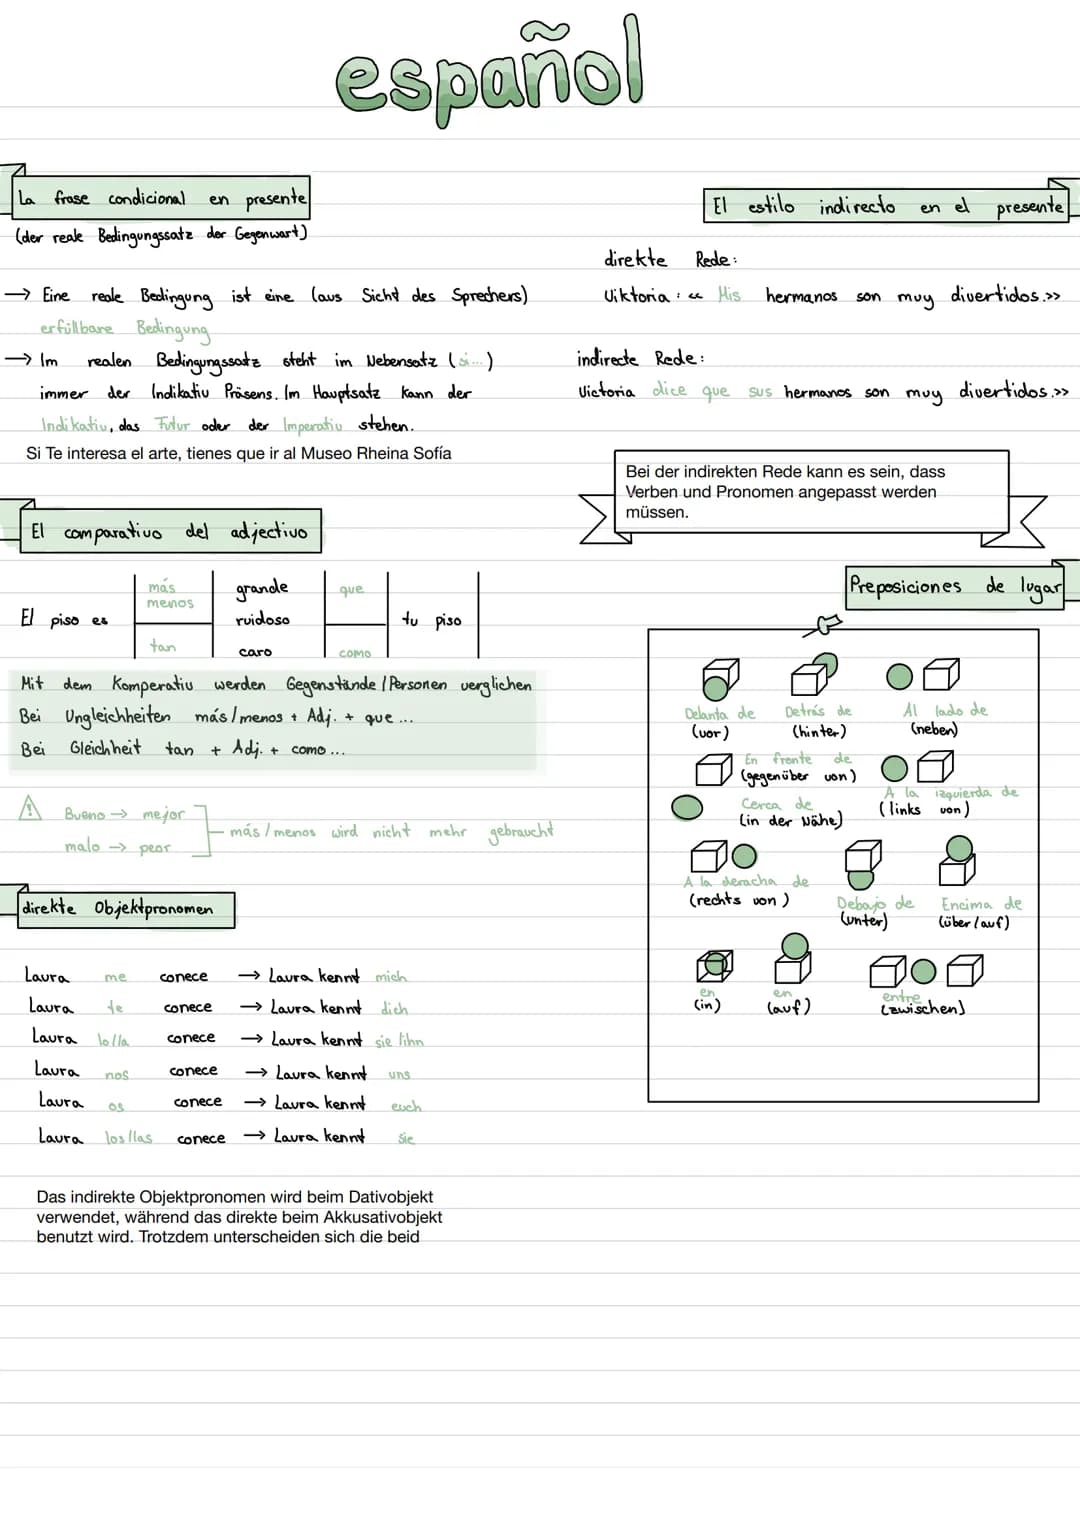 español
La frase condicional en presente
(der reale Bedingungssatz der Gegenwart)
→ Eine reale Bedingung ist eine (aus Sicht des Sprechers)
erfüllbare Bedingung
→ Im realen Bedingungssatz steht im Nebensatz (si...)
immer der Indikativ Präsens. Im Hauptsatz kann der
Indikativ, das Futur oder der Imperativ stehen.
Si Te interesa el arte, tienes que ir al Museo Rheina Sofía
El comparativo del adjectivo
más grande que
menos
El piso es ruidoso tu piso
tan caro como
Mit dem Komperativ werden Gegenstände / Personen verglichen
Bei Ungleichheiten más/menos + Adj. + que ...
Bei Gleichheit tan + Adj. + como ...
⚠ Bueno → mejor
malo → peor
más / menos wird nicht mehr gebraucht
direkte Objektpronomen
Laura me conece → Laura kennt mich
Laura te conece → Laura kennt dich
Laura lo/la conece → Laura kennt sie/ihn
Laura nos conece → Laura kennt uns
Laura os conece → Laura kennt euch
Laura los/las conece → Laura kennt sie
Das indirekte Objektpronomen wird beim Dativobjekt
verwendet, während das direkte beim Akkusativobjekt
benutzt wird. Trotzdem unterscheiden sich die beid
El estilo indirecto en el presente
direkte Rede:
Viktoria : << Mis hermanos son muy divertidos.>>
indirecte Rede:
Victoria dice que sus hermanos son muy divertidos.>>
Bei der indirekten Rede kann es sein, dass
Verben und Pronomen angepasst werden
müssen.
Preposiciones de lugar
Delanta de Detrás de Al lado de
(vor) (hinter) (neben)
En frente de
(gegenüber von)
A la izquierda de
(links von)
Cerca de
(in der Nähe)
A la deracha de
(rechts von)
Debajo de Encima de
(unter) (über/auf)
en en entre
(in) (auf) (zwischen)